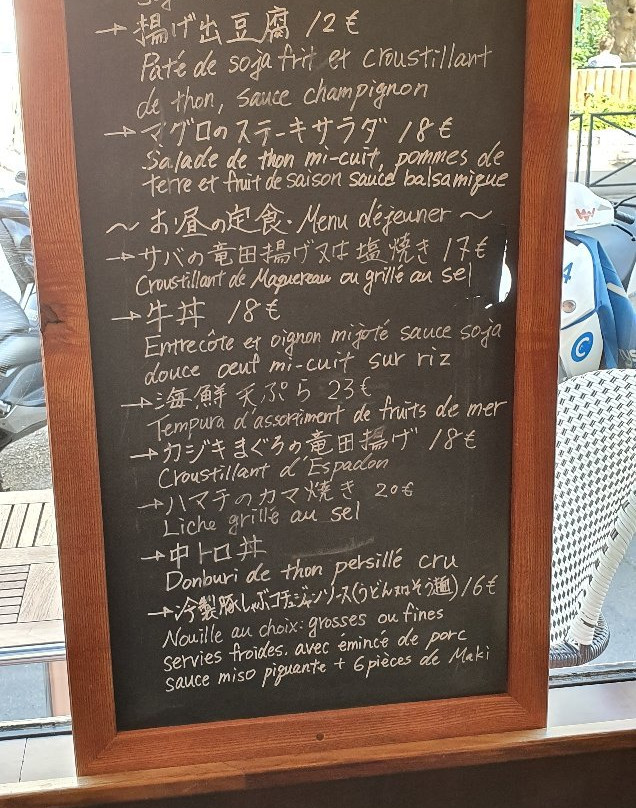 →揚げ出豆腐 12€
Paté de soja frit et croustillant
de thon, sauce champignon
→マグロのステーキサラダ 18€
Salade de thon mi-cuit, pommes de
terre et fruit de saison sauce balsamique
～お昼の定食・Menu déjeuner～
→サバの竜田揚げ又は塩焼き 17€
Croustillant de Maquereau ou grillé au sel
→牛丼 18€
Entrecôte et oignon mijoté sauce soja
douce oeuf mi-cuit sur riz
→海鮮天ぷら 23€
Tempura d'assortiment de fruits de mer
→カジキまぐろの竜田揚げ 18€
Croustillant d'Espadon
→ハマチのカマ焼き 20€
Liche grillé au sel
→中トロ丼
Donburi de thon persillé cru
→冷製豚しゃぶコチュジャンソース(うどん又はそう麺) 16€
Nouille au choix: grosses ou fines
servies froides. avec émincé de porc
sauce miso piquante + 6 pièces de Maki